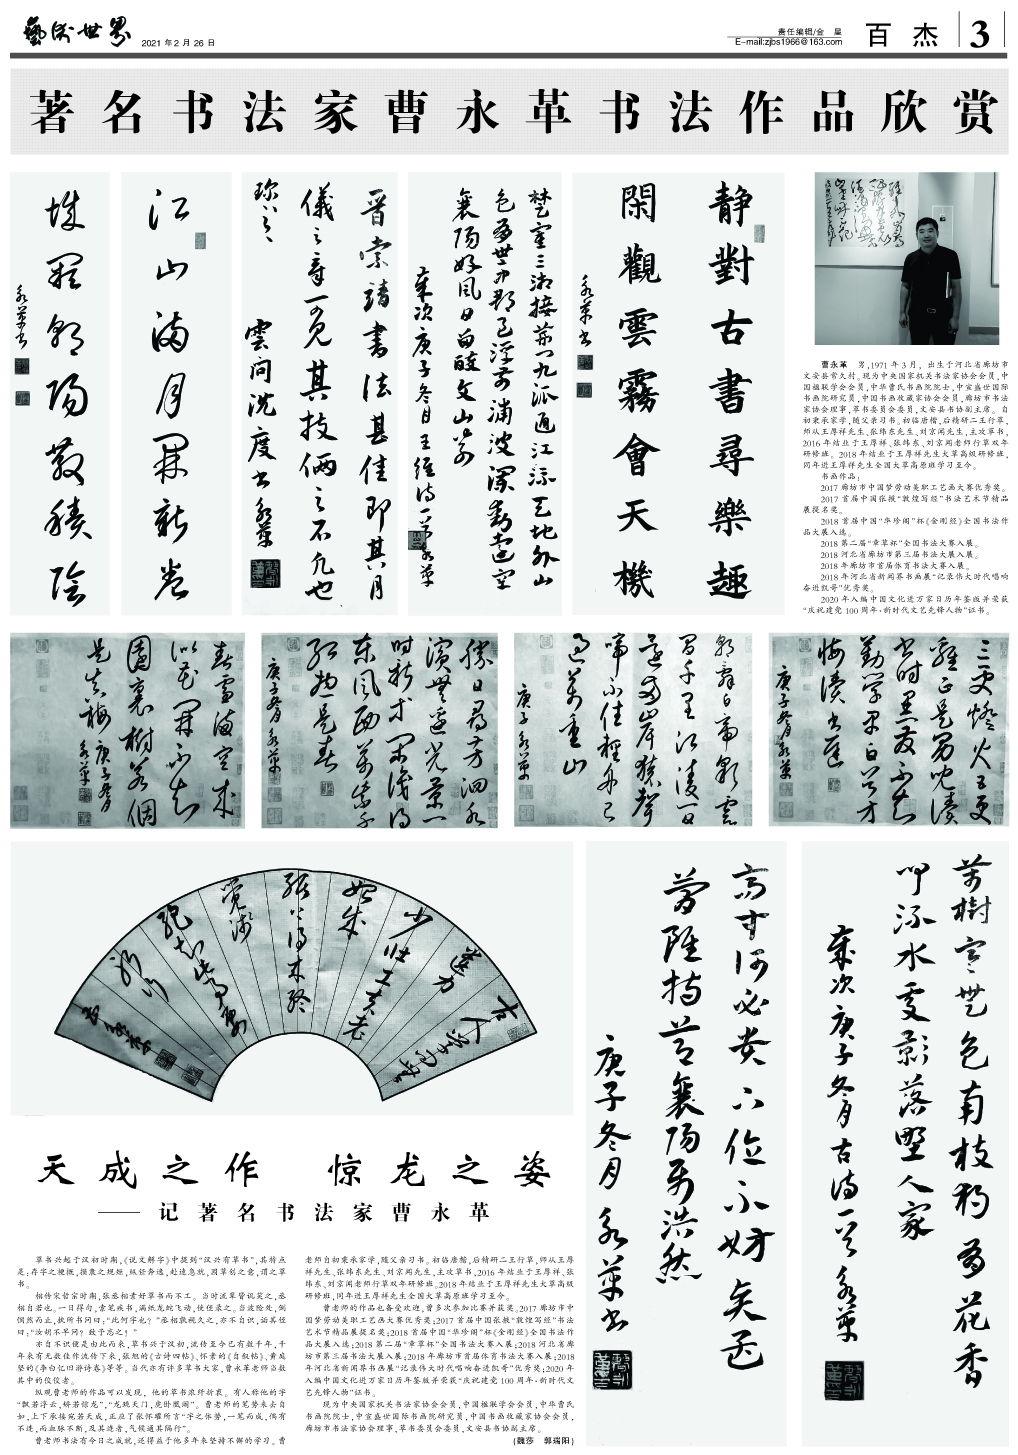 藝術世界
2021年2月26日
责任编辑/金 星
E-mail:zjbs1966@163.com
百杰
3
著名书法家曹永革书法作品欣赏
静對古書尋樂趣
閑觀雲霧會天機
永革书
晋索靖書法甚佳即其月
儀之章一见其技俩之不凡也
珎之
雲间沈度书永革
楚塞三湘接荆门九派通江流天地外山
色有无中郡邑浮前浦波澜动远空
襄陽好风日留醉与山翁
歲次庚子冬月王维诗一首永革
江山满月開新卷
永革书
曹永革 男,1971年3月，出生于河北省廊坊市
文安县常久村。现为中央国家机关书法家协会会员,中
国楹联学会会员,中华曹氏书画院院士,中宣盛世国际
书画院研究员,中国书画收藏家协会会员,廊坊市书法
家协会理事,草书委员会委员,文安县书协副主席。自
初秉承家学,随父亲习书。初临唐楷,后精研二王行草,
师从王厚祥先生、张纬东先生、刘京闻先生,主攻草书,
2016年结业于王厚祥、张纬东、刘京闻老师行草双年
研修班。2018年结业于王厚祥先生大草高级研修班,
同年进王厚祥先生全国大草高原班学习至今。
书画作品:
2017廊坊市中国梦劳动美职工艺画大赛优秀奖。
2017首届中国张掖“敦煌写经”书法艺术节精品
展提名奖。
2018首届中国“华珍阁”杯(金刚经)全国书法作
品大展入选。
2018第二届“章草杯”全国书法大赛入展。
2018河北省廊坊市第三届书法大展入展。
2018年廊坊市首届体育书法大赛入展。
2018年河北省新闻界书画展“记录伟大时代唱响
奋进凯哥”优秀奖。
2020年入编中国文化进万家日历年签版并荣获
“庆祝建党100周年·新时代文艺先锋人物”证书。
春雪满空来
觸处似花開不知
園裏樹若個
是真梅
庚子冬月
永革
勝日尋芳泗水
濱無邊光景一
时新等閑識得
東風面萬紫千
红总是春
庚子冬月永革
朝辞白帝彩雲
间千里江陵一日
還两岸猿聲
啼不住輕舟已
过万重山
庚子永革
三更燈火五更
雞正是男兒讀
书时黑发不知
勤学早白首方
悔讀书遲
庚子冬月永革
古人学问無
遺力
少壮工夫老
始成
紙上得来终
覺淺
绝知此事要
躬行
高才何必贵下位不妨賢孟
簡雖持节襄陽属浩然
庚子冬月永革书
萬樹寒無色南枝独有花香
闻流水處影落野人家
歲次庚子冬月古诗一首永革
天成之作 惊龙之姿
—— 记著名书法家曹永革
草书兴起于汉初时期,《说文解字》中提到“汉兴有草书”,其特点
是:存字之梗概,损隶之规矩,纵任奔逸,赴速急就,因草创之意,谓之草
书。
相传宋哲宗时期,张丞相素好草书而不工。当时流辈皆讥笑之,丞
相自若也。一日得句,索笔疾书,满纸龙蛇飞动,使侄录之。当波险处,侄
惘然而止,执所书问曰:“此何字也?”丞相孰视久之,亦不自识,诟其侄
曰:“汝胡不早问?致予忘之!”
亦自不识便是由此而来,草书兴于汉初,流传至今已有数千年,千
年来有无数佳作流传下来,张旭的《古诗四帖》、怀素的《自叙帖》、黄庭
坚的《李白忆旧游诗卷》等等。当代亦有许多草书大家,曹永革老师当数
其中的佼佼者。
纵观曹老师的作品可以发现，他的草书浪纤折衷。有人称他的字
“飘若浮云,矫若惊龙”,“龙跳天门,虎卧凰阁”。曹老师的笔势来去自
如,上下承接宛若天成,正应了张怀瓘所言“字之体势,一笔而成,偶有
不连,而血脉不断,及其连者,气候通其隔行”。
曹老师书法有今日之成就,还得益于他多年来坚持不懈的学习。曹
老师自初秉承家学,随父亲习书。初临唐楷,后精研二王行草,师从王厚
祥先生、张纬东先生、刘京闻先生,主攻草书,2016年结业于王厚祥、张
纬东、刘京闻老师行草双年研修班。2018年结业于王厚祥先生大草高级
研修班,同年进王厚祥先生全国大草高原班学习至今。
曹老师的作品也备受欢迎,曾多次参加比赛并获奖。2017廊坊市中
国梦劳动美职工艺画大赛优秀奖;2017首届中国张掖“敦煌写经”书法
艺术节精品展提名奖;2018首届中国“华珍阁”杯(金刚经)全国书法作
品大展入选;2018第二届“章草杯”全国书法大赛入展;2018河北省廊
坊市第三届书法大展入展;2018年廊坊市首届体育书法大赛入展;2018
年河北省新闻界书画展“记录伟大时代唱响奋进凯哥”优秀奖;2020年
入编中国文化进万家日历年签版并荣获“庆祝建党100周年·新时代文
艺先锋人物”证书。
现为中央国家机关书法家协会会员,中国楹联学会会员,中华曹氏
书画院院士,中宣盛世国际书画院研究员,中国书画收藏家协会会员,
廊坊市书法家协会理事,草书委员会委员,文安县书协副主席。
(魏莎 郭瑞阳)